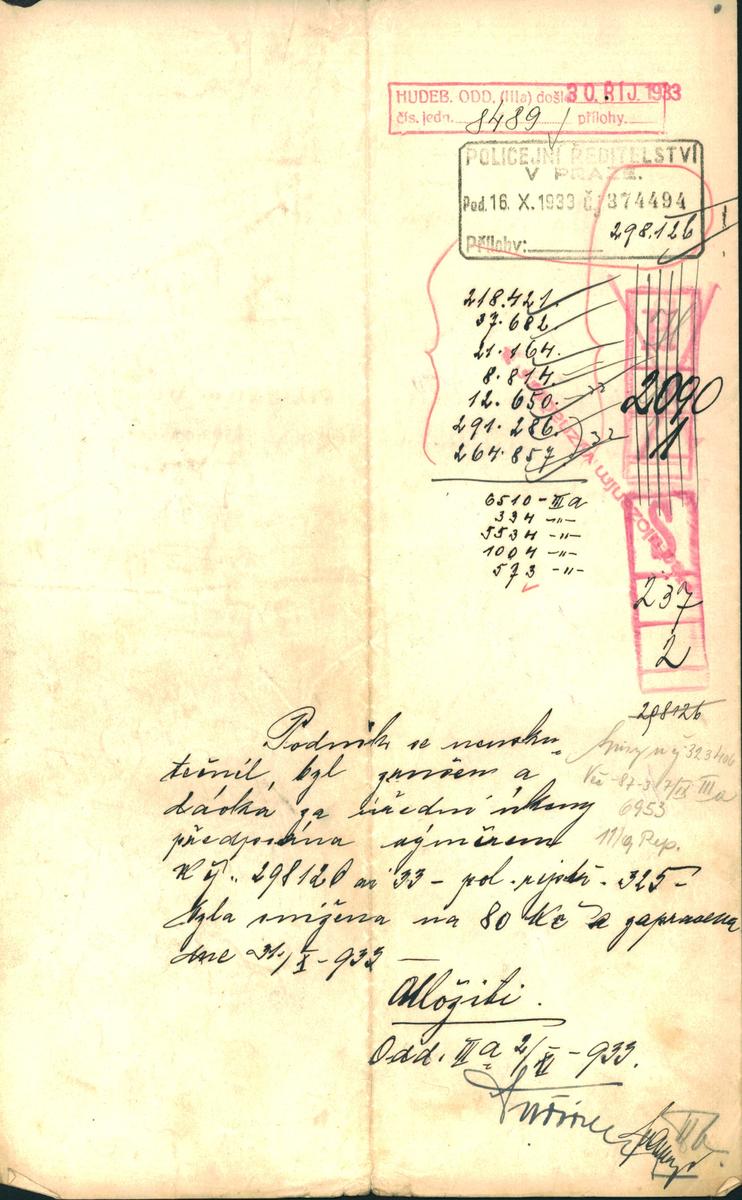 HUDEB. ODD. (IIIa) došlo 30. ŘÍJ. 1933
čís. jedn. 8489 přílohy.
POLICEJNÍ ŘEDITELSTVÍ
V PRAZE.
Pod. 16. X. 1933 č.j. 374494
298.126
Přílohy:
218.421.
37.682.
21.164.
8.814.
12.650.
291.286.
264.857.
2090
11
6510 - IIIa
334 -"-
5534 -"-
1004 -"-
573 -"-
237
2
298126
Podnik se neusku-
tečnil, byl zrušen a
dávka za úřední úkony
předepsána výměrem
k čj. 298126 ai 33 - pol. rejstř. 325 -
byla snížena na 80 Kč a zapravena
dne 31./X - 933 -
323406
IIIa
6953
Odložiti.
Odd. IIIa 2/XI - 933.
IIb